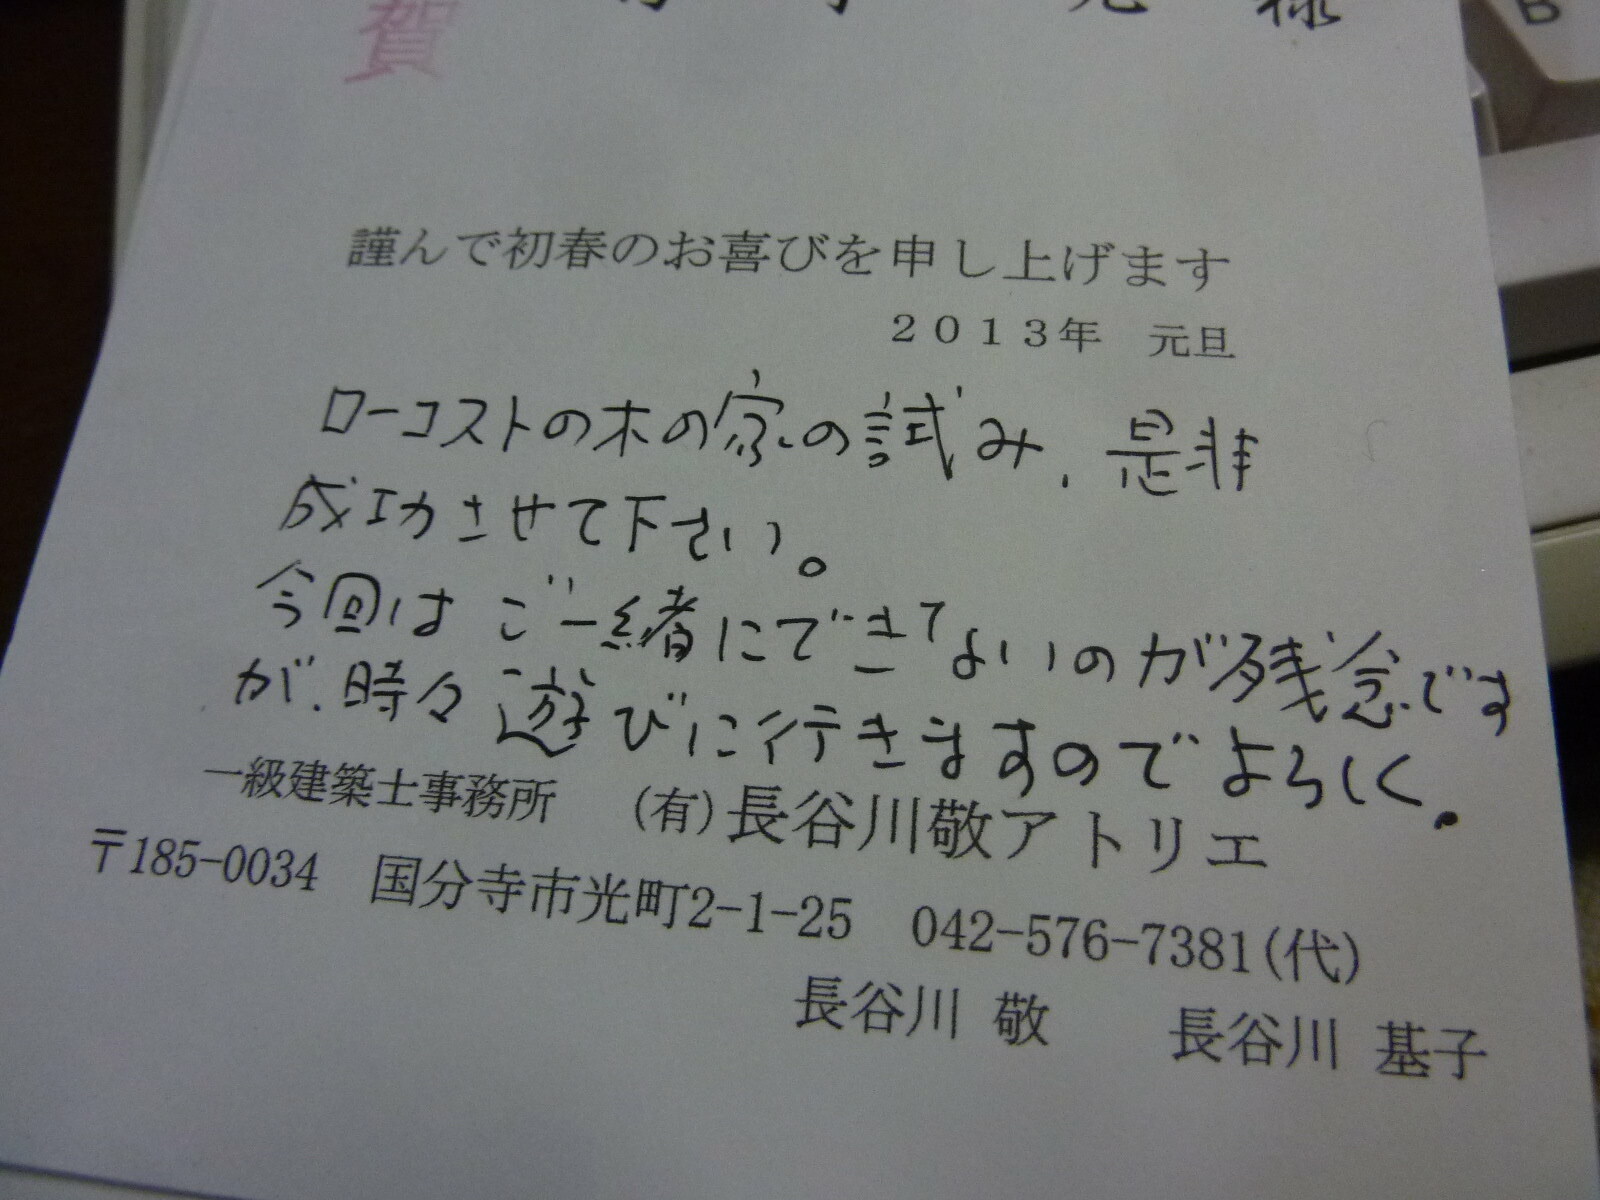 賀
様
謹んで初春のお喜びを申し上げます
2013年 元旦
ローコストの木の家の試み、是非
成功させて下さい。
今回はご一緒にできないのが残念です
が、時々遊びに行きますのでよろしく。
一級建築士事務所 (有)長谷川敬アトリエ
〒185-0034 国分寺市光町2-1-25 042-576-7381(代)
長谷川 敬 長谷川 基子